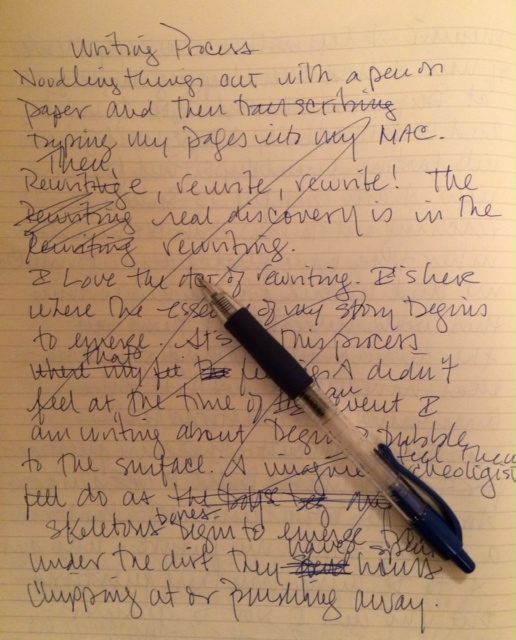 Writing Process
Noodling things out with a pen on
paper and then transcribing
typing my pages into my MAC.
Then,
Rewritinge, rewrite, rewrite! The
Rewriting real discovery is in the
Rewriting rewriting.
I Love the of rewriting. It's here
where the of my story begins
to emerge. this process
that's
where my feelings I didn't
feel at the time of an event I
am writing about begin bubble
to the surface. I imagine
feel do as the
skeletons bones begin to emerge
under the dirt they have spent hours
chipping at or brushing away.